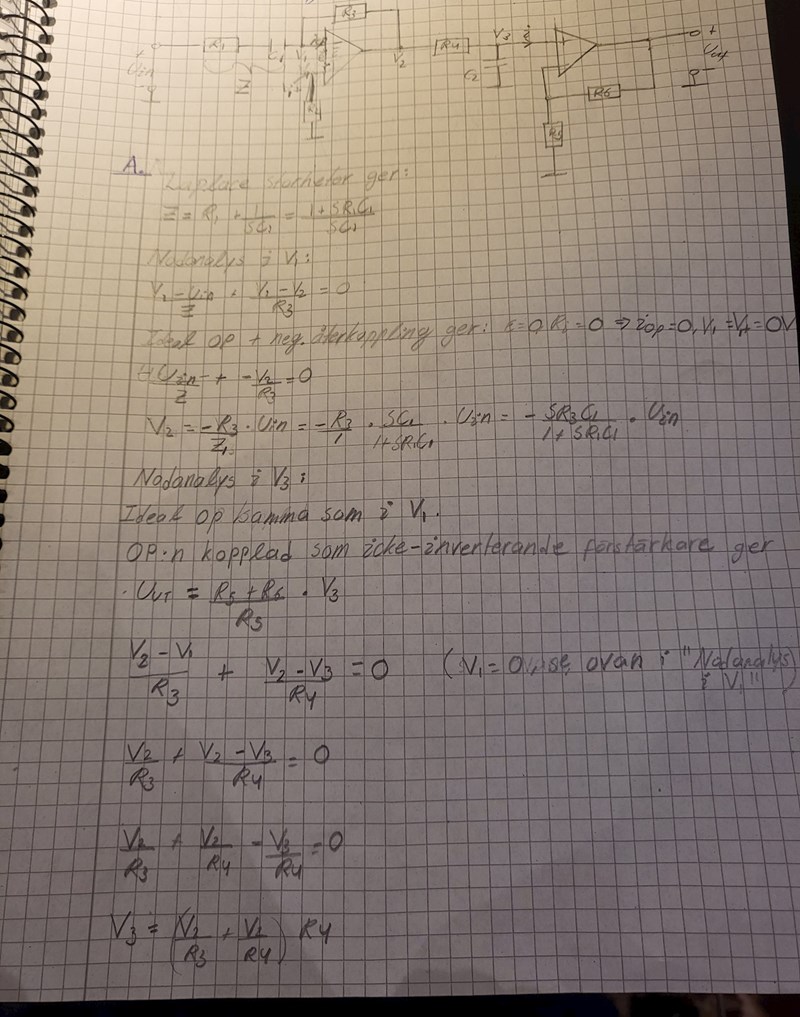 R3
R1
C1
V1
V2
R4
V3
i
C2
R6
R5
Uin
Uut
+
A.
Laplace storheter ger:
Z = R1 + 1/SC1 = (1+SR1C1)/SC1
Nodanalys i V1:
(V1 - Uin)/Z + (V1 - V2)/R3 = 0
Ideal OP + neg. återkoppling ger: ⇒ iop=0, V1 = =0V
-Uin/Z + -V2/R3 = 0
V2 = -R3/Z1 · Uin = -R3/1 · SC1/(1+SR1C1) · Uin = - SR3C1/(1+SR1C1) · Uin
Nodanalys i V3:
Ideal op samma som i V1.
OP:n kopplad som icke-inverterande förstärkare ger
· UUT = (R5 + R6)/R5 · V3
(V2 - V1)/R3 + (V2 - V3)/R4 = 0 (V1 = 0, se ovan i "Nodanalys
i V1")
V2/R3 + (V2 - V3)/R4 = 0
V2/R3 + V2/R4 - V3/R4 = 0
V3 = (V2/R3 + V2/R4) R4